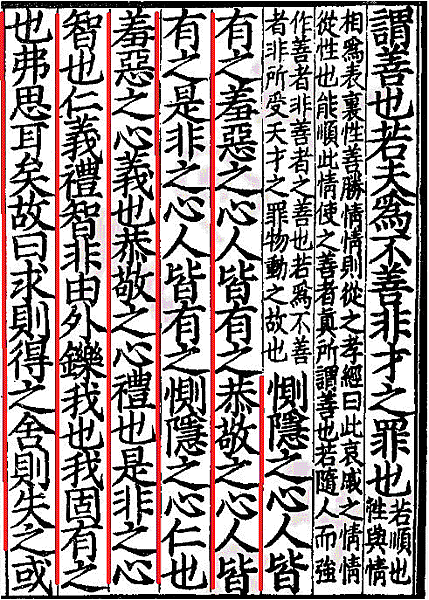 謂善也若夫爲不善非才之罪也
若順也
性與情
相爲表裏性善勝情情則從之孝經曰此哀戚之情情
從性也能順此情使之善者真所謂善也若隨人而強
作善者非善者之善也若爲不善
者非所受天才之罪物動之故也
惻隱之心人皆
有之羞惡之心人皆有之恭敬之心人皆
有之是非之心人皆有之惻隱之心仁也
羞惡之心義也恭敬之心禮也是非之心
智也仁義禮智非由外鑠我也我固有之
也弗思耳矣故曰求則得之舍則失之或